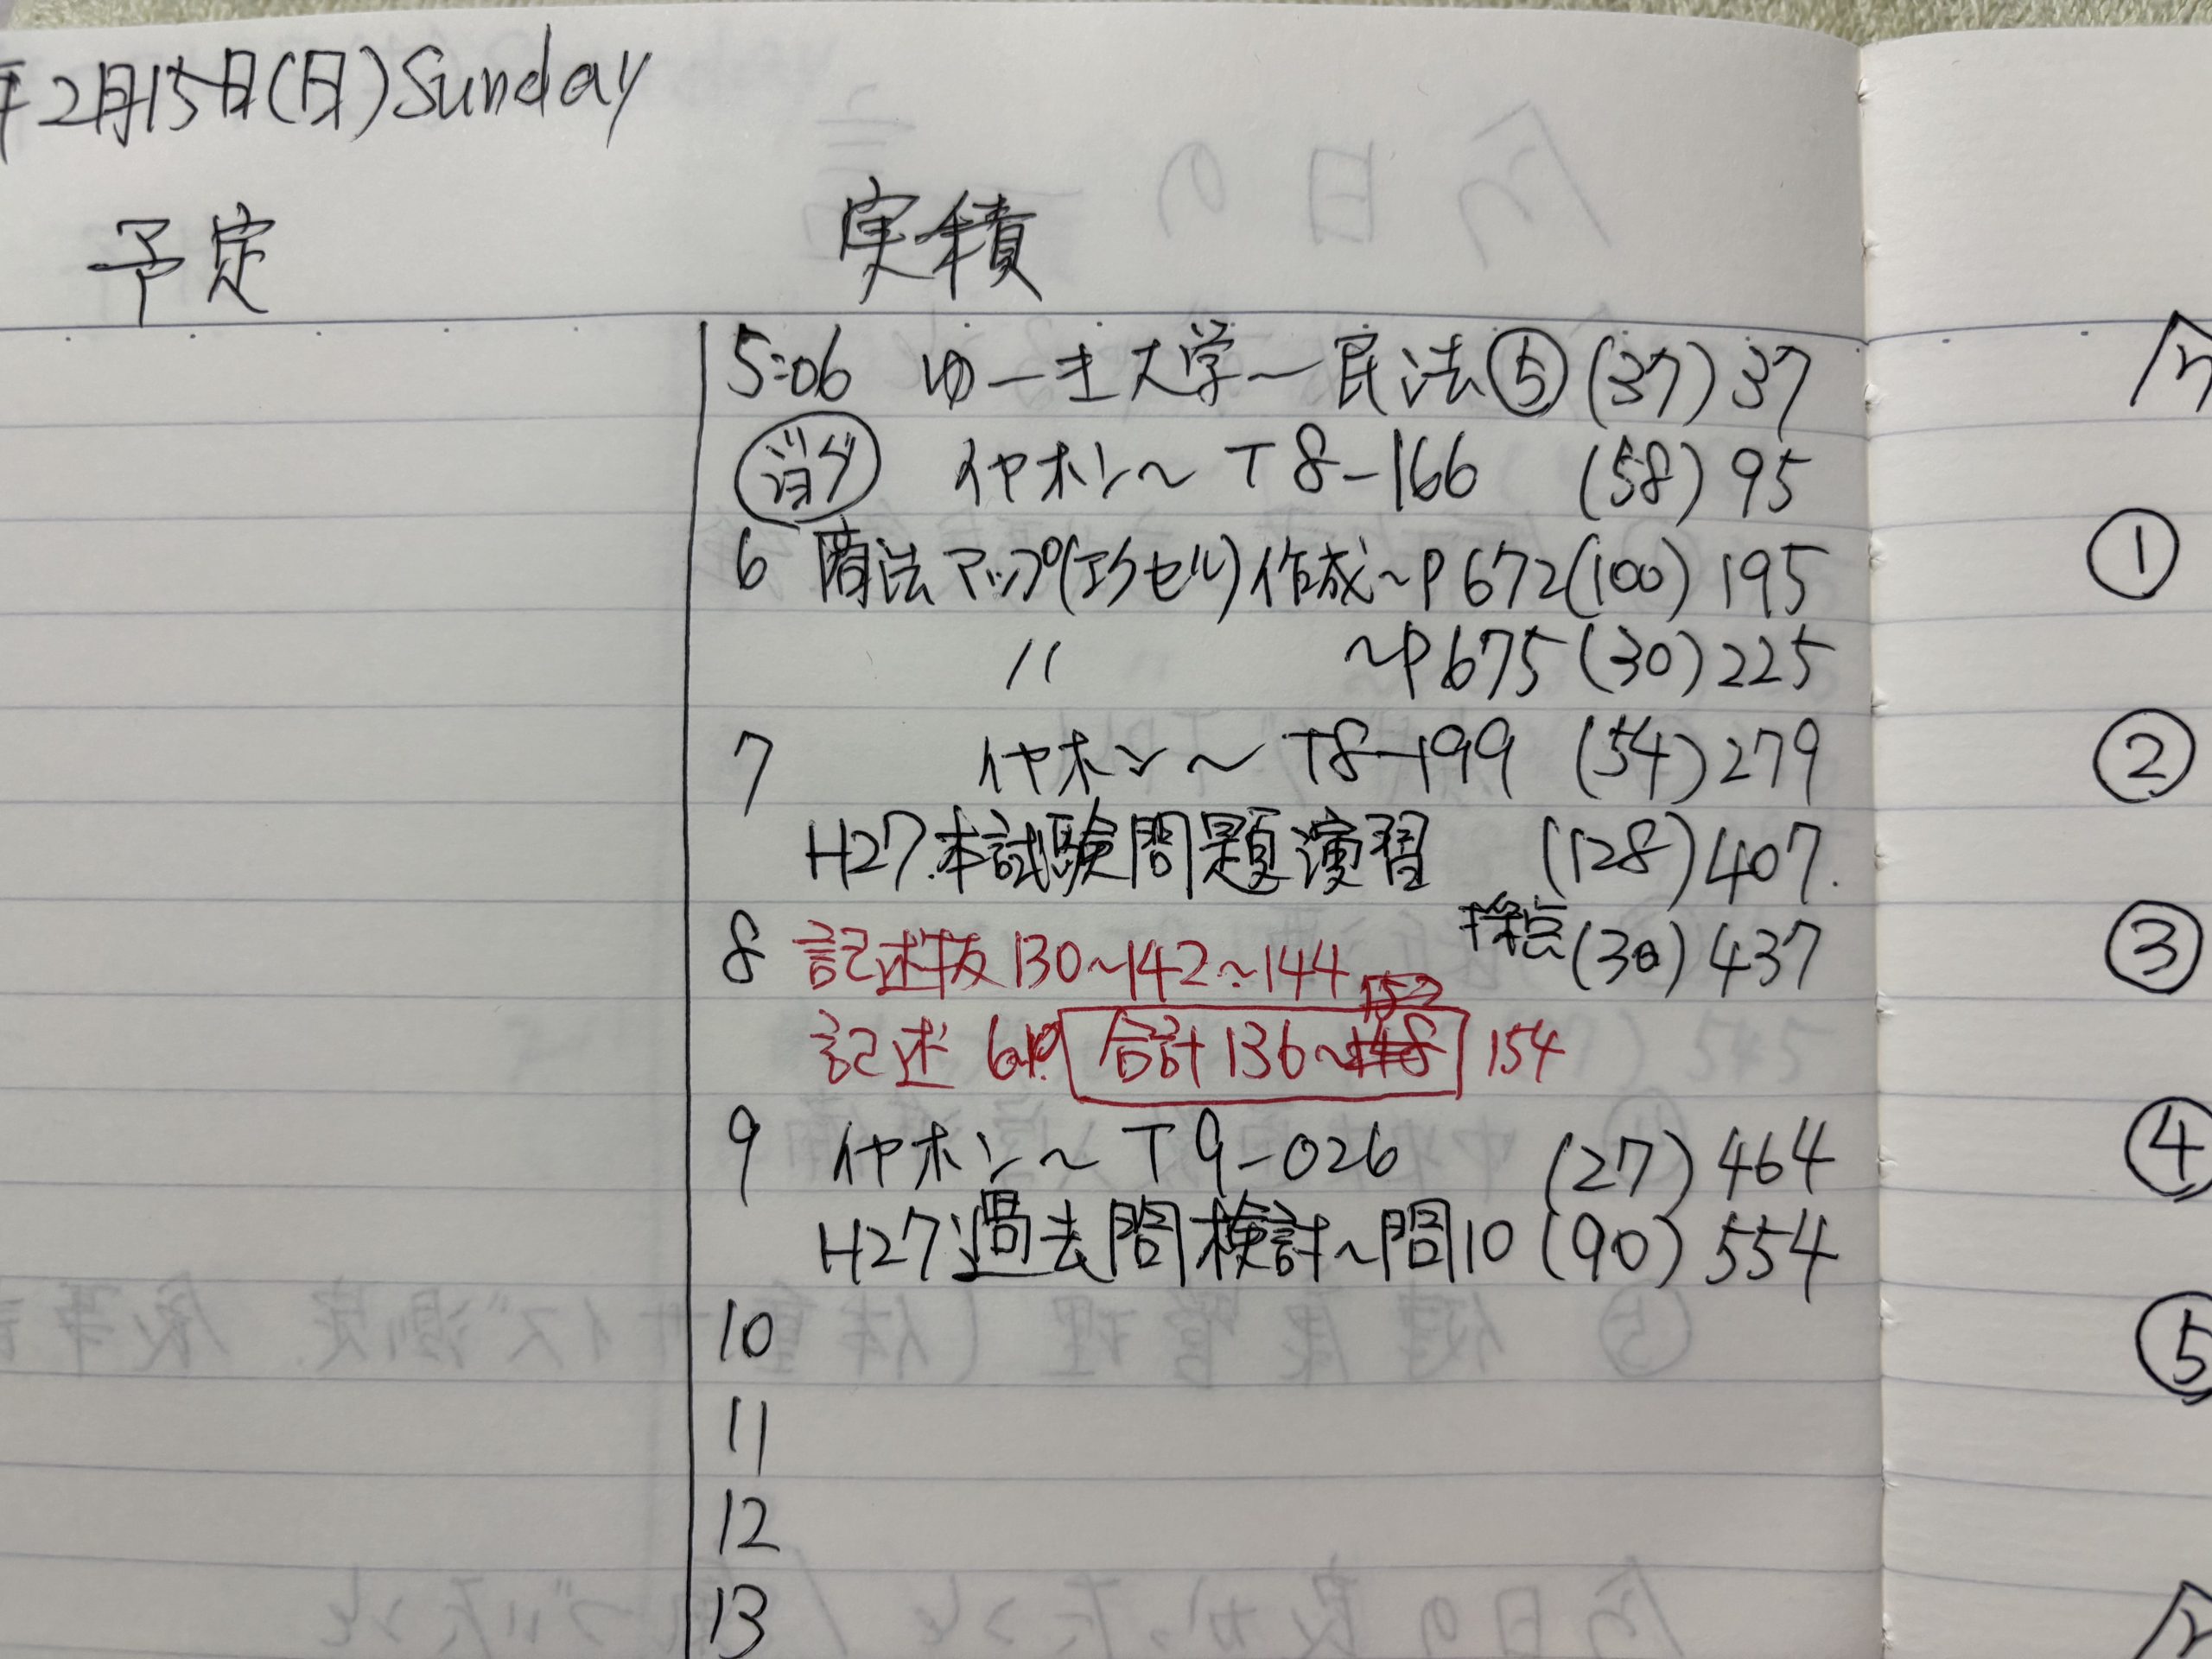 2月15日(日)Sunday
予定
実積
5:06 ゆーき大学～民法⑤(37)37
イヤホン～T8-166 (58)95
6 商法アップ(エクセル)作成～P672(100)195
〃 ～P675(30)225
7 イヤホン～T8-199 (54)279
H27.本試験問題演習 (128)407.
採点(30)437
8 記述抜130～142～144
152
記述 6 合計136～148 154
9 イヤホン～T9-026 (27)464
H27過去問検討～問10(90)554
10
11
12
13
①
②
③
④
⑤